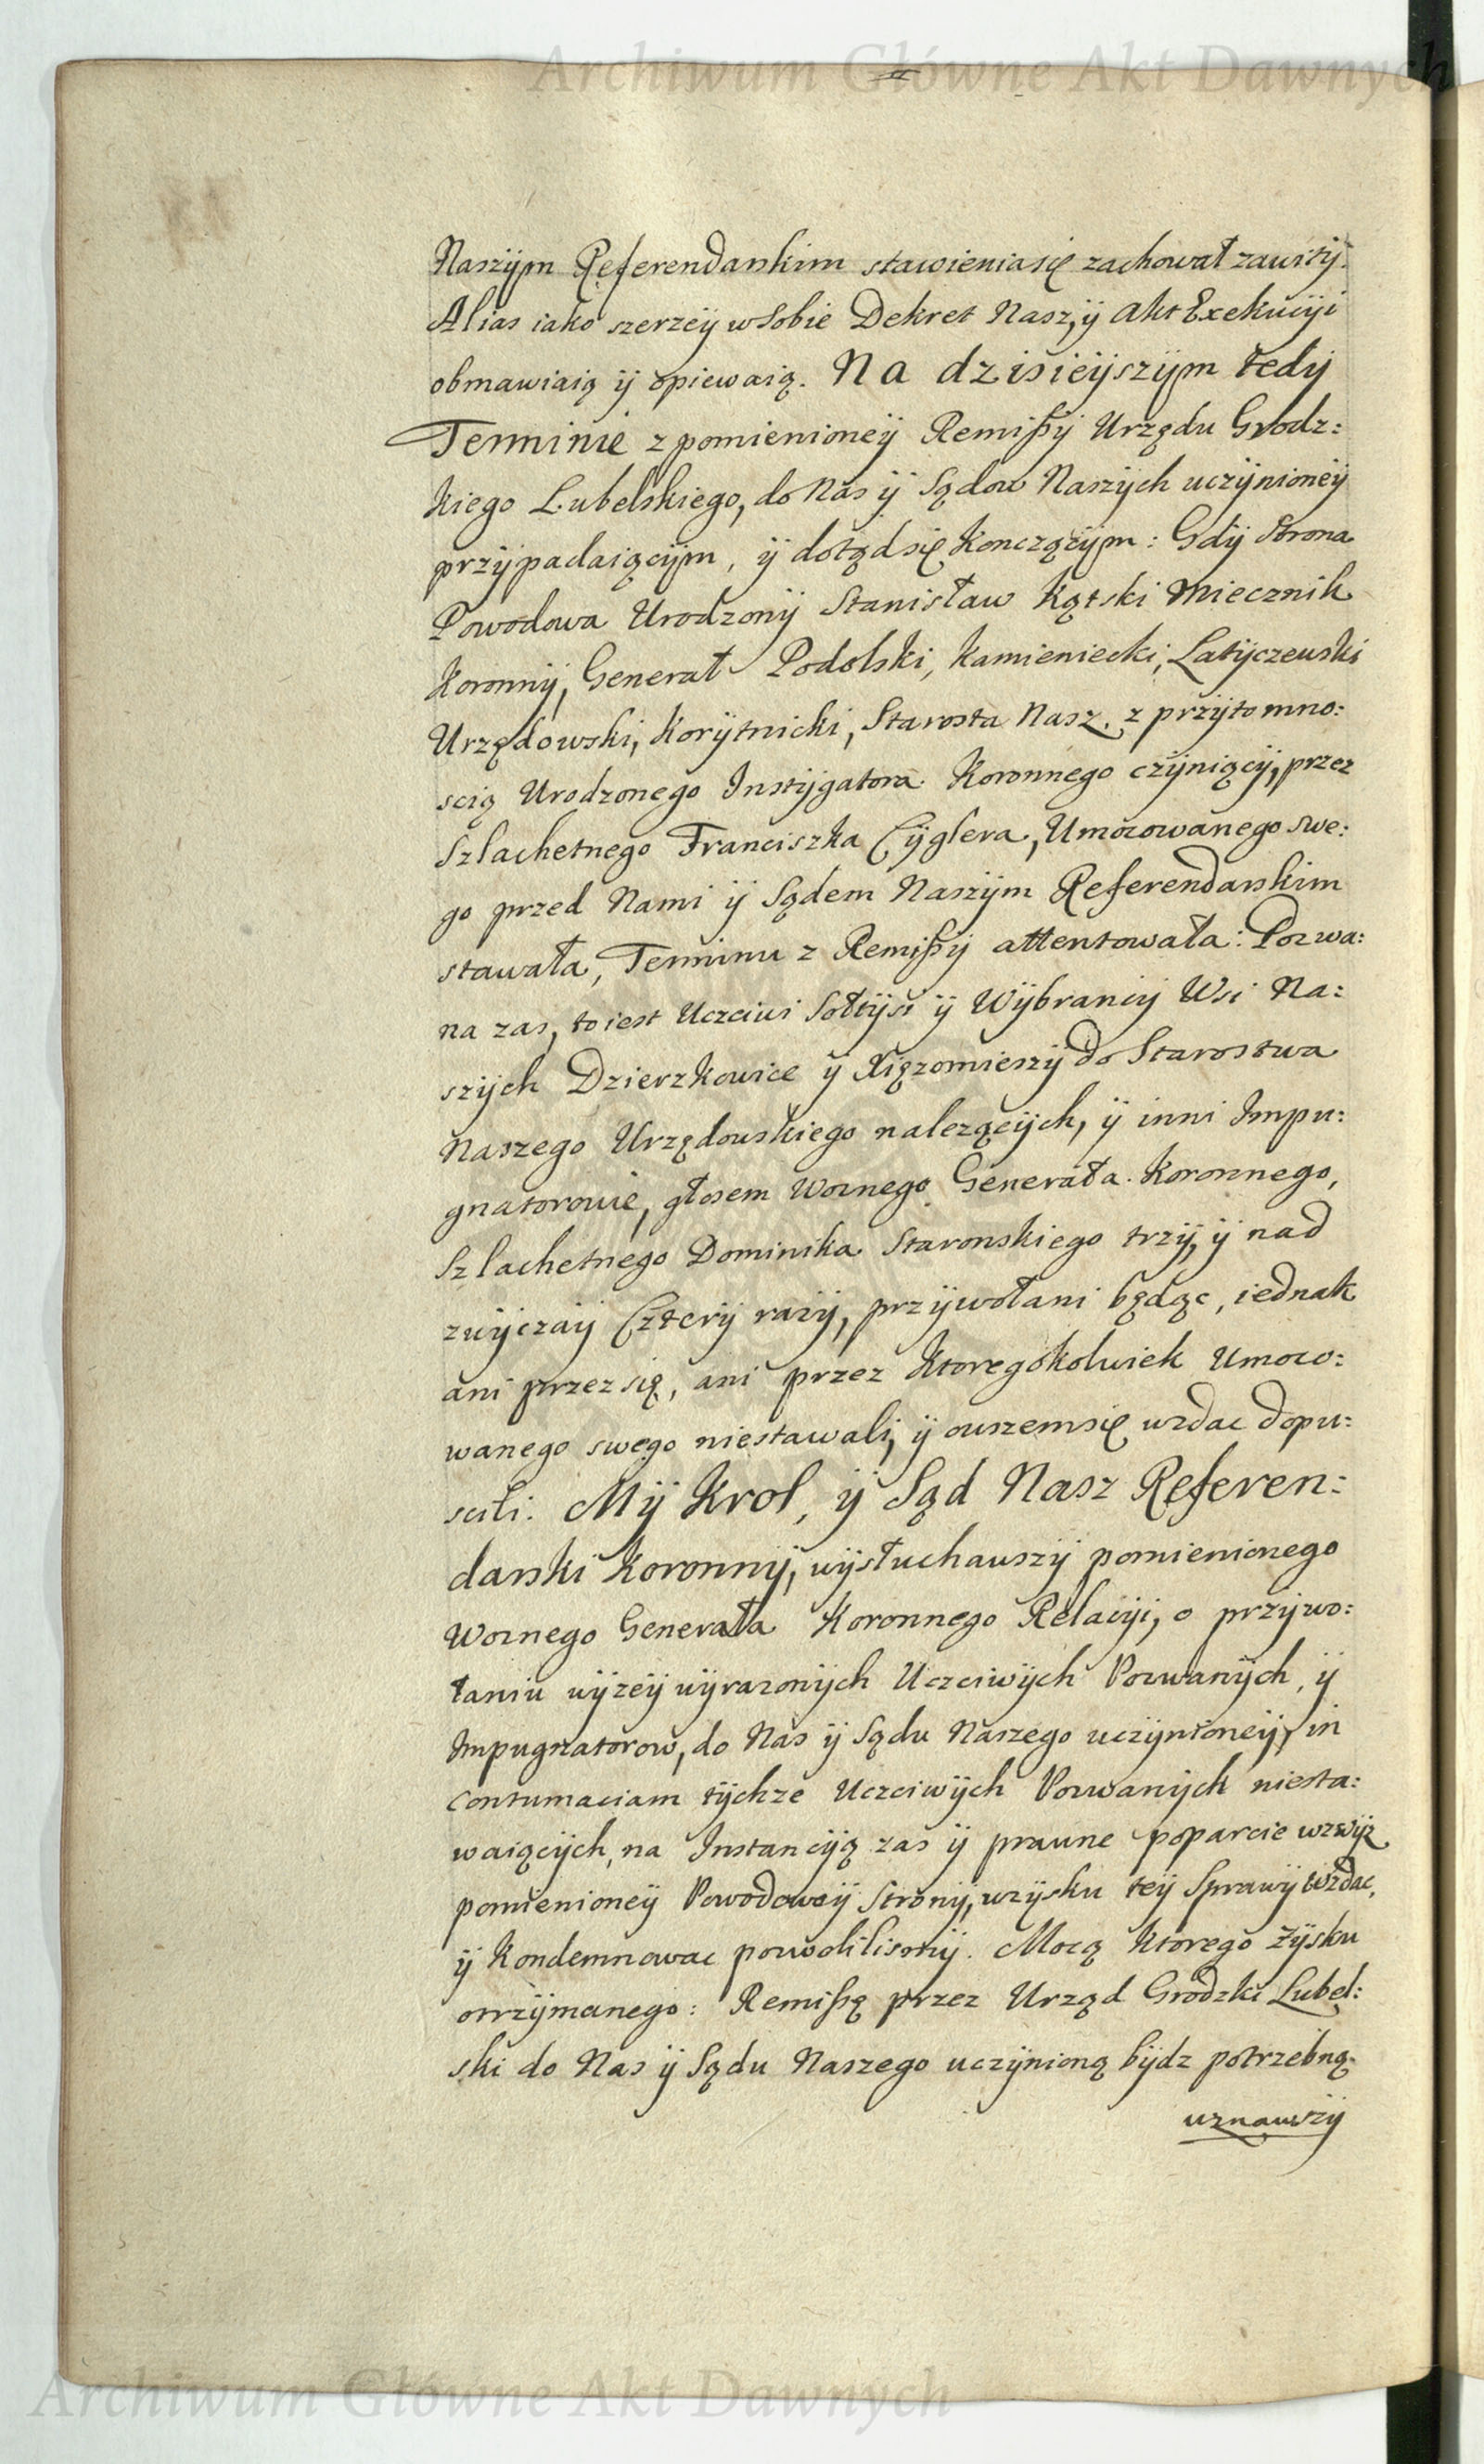 Archiwum Główne Akt Dawnych
Naszÿm Referendarskim stawieniasię zachował zawitÿ.
Alias iako szerzeÿ w sobie Dekret Nasz, ÿ Akt Exekucÿi
obmawiaią ÿ opiewaią. Na dzisieÿszÿm tedÿ
Terminie z pomienioneÿ Remißÿ Urzędu Grodz:
kiego Lubelskiego, do Nas ÿ Sądow Naszÿch uczÿnioneÿ
przÿpadaiącÿm, ÿ dotąd się konczącÿm: Gdÿ strona
Powodowa Urodzonÿ Stanisław Kątski Miecznik
Koronnÿ, Generał Podolski, Kamieniecki, Latÿczewski
Urzędowski, Korÿtnicki, Starosta Nasz. z przÿtomno:
scią Urodzonego Instÿgatora Koronnego czÿniącÿ, przez
Szlachetnego Franciszka Cÿglera, Umocowanego swe:
go przed Nami ÿ Sądem Naszÿm Referendarskim
stawała, Terminu z Remißÿ attentowała: Pozwa:
na zas, to iest Uczciwi Sołtÿsi ÿ Wÿbrancÿ Wsi Na:
szÿch Dzierzkowice ÿ Xięzomieszÿ do Starostwa
Naszego Urzędowskiego nalezącÿch, ÿ inni Impu:
gnatorowie, głosem Woznego Generała Koronnego,
Szlachetnego Dominika Staronskiego trzÿ, ÿ nad
zwÿczaÿ Czterÿ razÿ, przÿwołani będąc, iednak
ani przez się, ani przez ktoregokolwiek Umoco:
wanego swego niestawali, ÿ owszem się wzdac dopu:
scili: Mÿ Krol, ÿ Sąd Nasz Referen:
darski Koronnÿ, wÿsłuchawszÿ pomienionego
Woznego Generała Koronnego Relacÿi, o przÿwo:
łaniu wÿzeÿ wÿrazonÿch Uczciwÿch Pozwanÿch, ÿ
Impugnatorow, do Nas ÿ Sądu Naszego uczÿnioneÿ, in
contumaciam tÿchze Uczciwÿch Pozwanÿch niesta:
waiącÿch, na Instancÿą zas ÿ prawne poparcie wzwÿz
pomienioneÿ Powodoweÿ Stronÿ, wzÿsku teÿ Sprawÿ wzdac,
ÿ Kondemnowac pozwolilismÿ. Mocą ktorego Zÿsku
otrzÿmanego: Remißę przez Urząd Grodzki Lubel:
ski do Nas ÿ Sądu Naszego uczÿnioną bÿdz potrzebną
uznawszÿ
Archiwum Główne Akt Dawnych